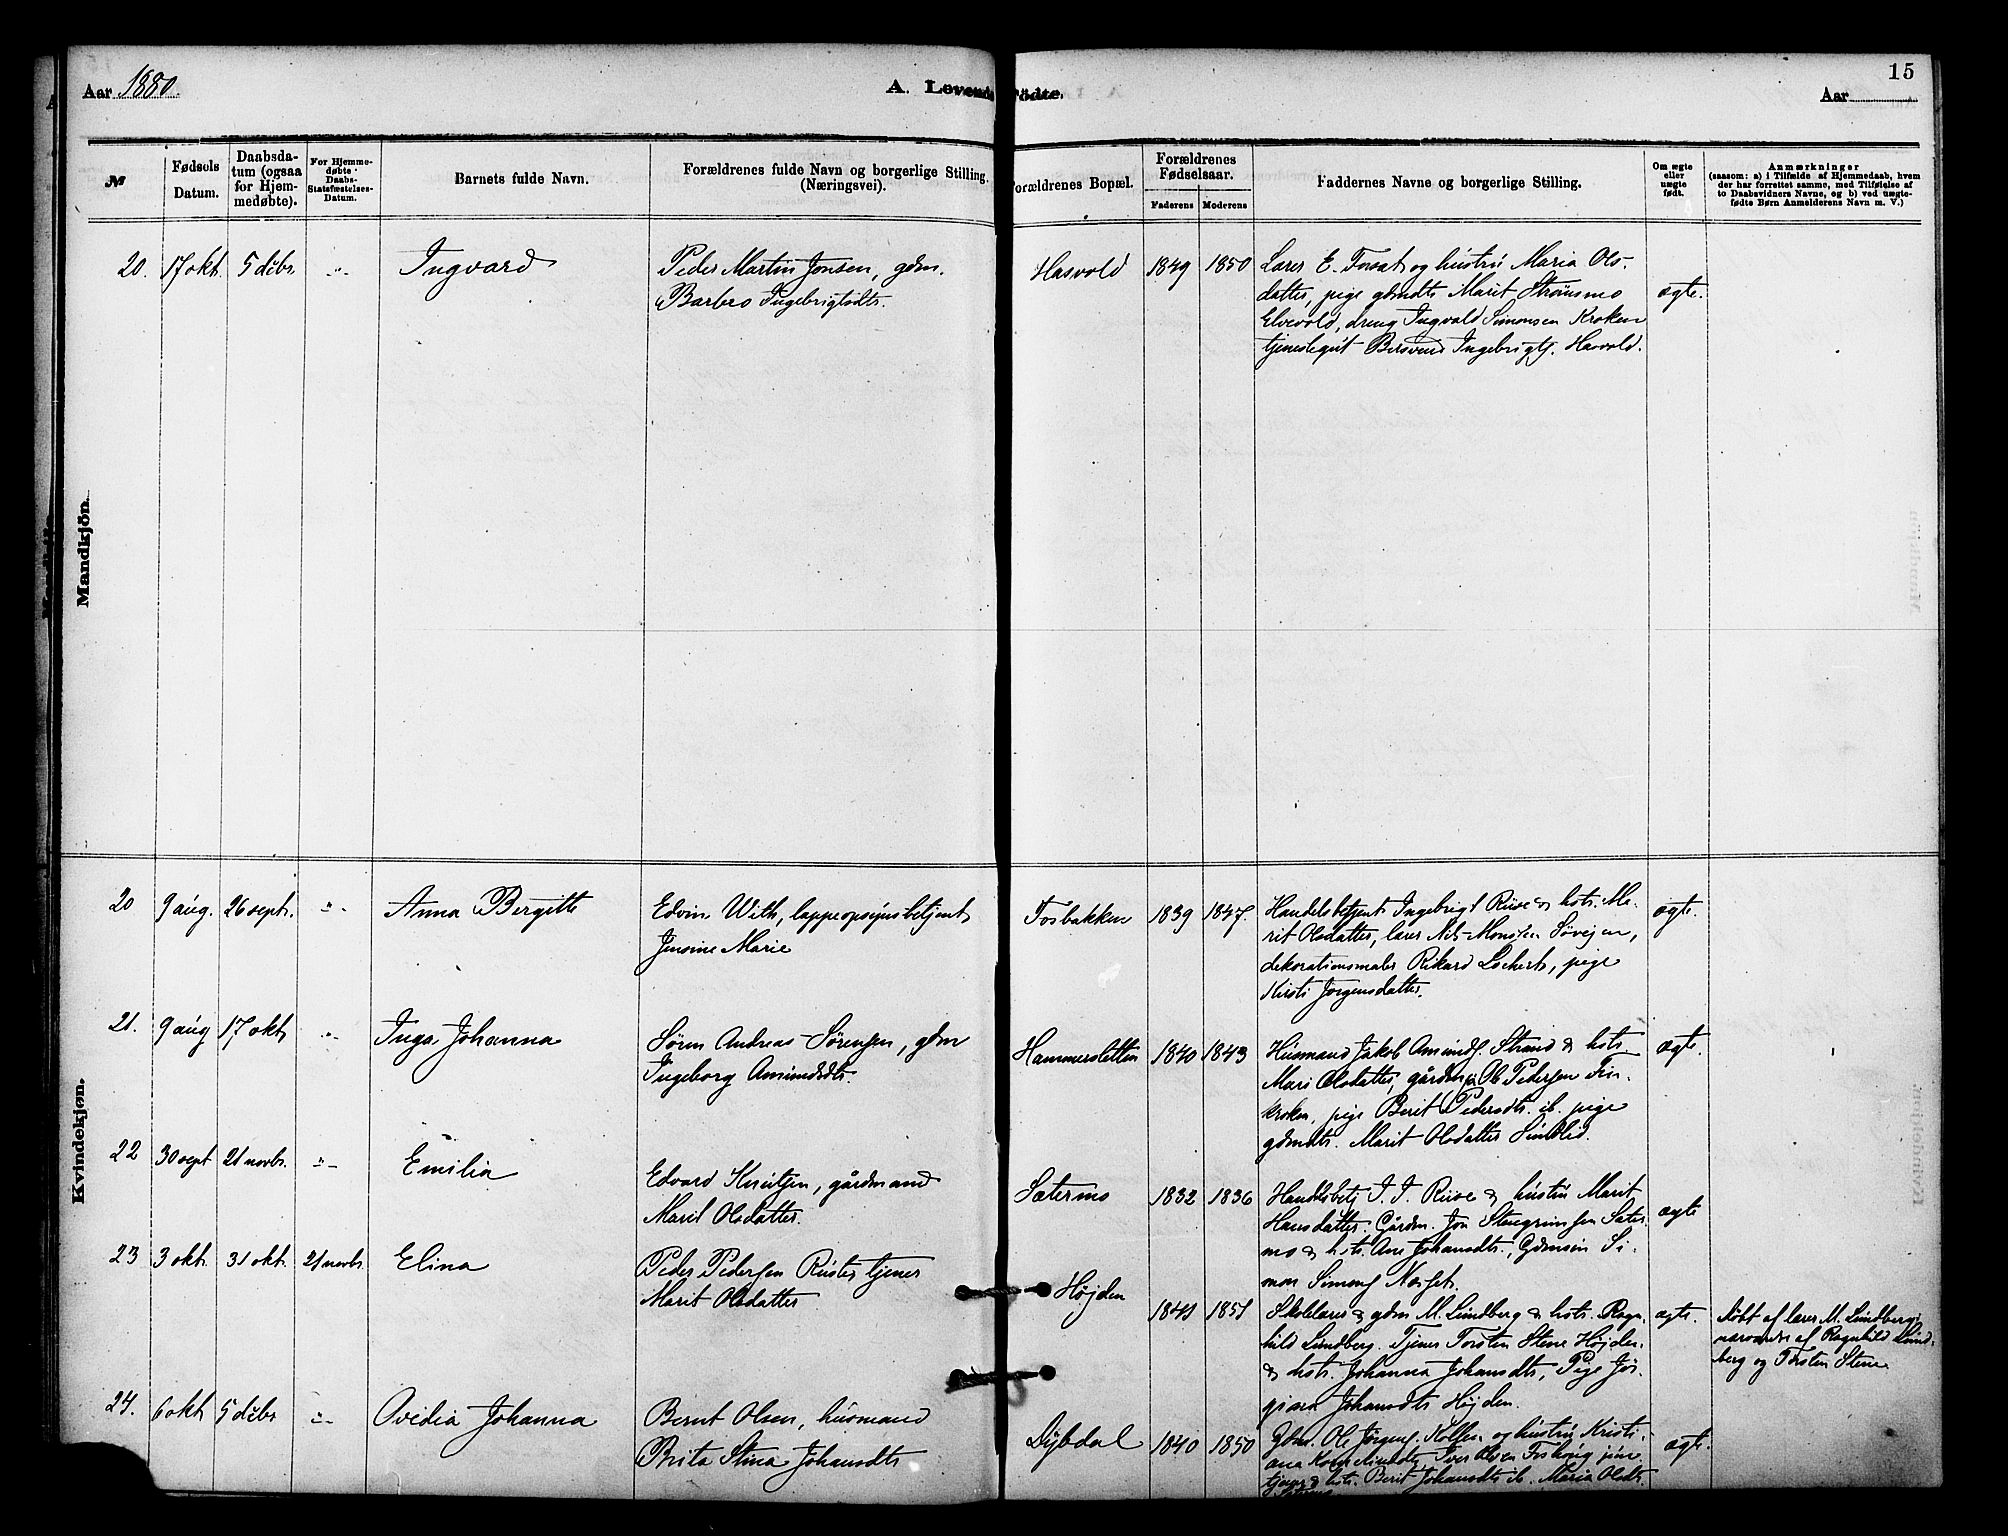 15
Aar 1880. A. Levende Fødte. Aar
№
Fødsels Datum.
Daabsdatum (ogsaa for Hjemmedøbte).
For Hjemmedøbte Daabs-Statsfæstelses-Datum.
Barnets fulde Navn.
Forældrenes fulde Navn og borgerlige Stilling.
(Næringsvei).
Forældrenes Bopæl.
Forældrenes Fødselsaar.
Faderens Moderens
Faddernes Navne og borgerlige Stilling.
Om ægte eller uægte født.
Anmærkninger
(saasom: a) i Tilfælde af Hjemmedaab, hvem
der har forrettet samme, med Tilføielse af
to Daabsvidners Navne, og b) ved uægte-
fødte Børn Anmelderens Navn m. V.)
Mandkjön.
20. 17 okt. 5 debr. -"- Ingvard
Peder Martin Jonsen, gdm.
Barbro Ingebrigtsdtr.
Hasvold 1849 1850
Lærer E. Fossat og hustru Maria Ols-
datter, pige gdmdtr Marit Strømsmo
Elvevold, dreng Ingvald Simonsen Kroken
tjenestegut Bersvend Ingebrigts. Hasvold.
ægte.
Kvindekjøn.
20 9 aug. 26 sept. -"- Anna Bergitte
Edvin With, lappeopsynsbetjent
Jensine Marie
Fosbakken 1839 1847.
Handelsbetjent Ingebrigt Riise & hstr. Me-
rit Olsdatter, lærer Nils Monsen Søvejen,
dekorationsmaler Rikard Lochert, pige
Kirsti Jørgensdatter.
ægte.
21. 9 aug 17 okt -"- Inga Johanna
Søren Andreas Sørensen, gdm
Ingeborg Amundsdtr.
Hammersletten 1840 1843
Husmand Jakob Amunds. Strand & hstr
Mari Olsdatter, gårdm. Ol Pedersen Fin-
kroken, pige Berit Pedersdtr. ib. pige
gdmdtr. Marit Olsdatter Sundlid.
ægte.
22 30 sept 21 novbr. -"- Emilia
Edvard Knutsen, gårdmand
Marit Olsdatter.
Sætermo 1832 1836
Handelsbetj I. I. Riise & hustru Marit
Hansdatter. Gårdm. Jon Stengrimsen Sæter
mo & hstr. Ane Johansdtr., Gdmsøn Si-
mon Simons Norset.
ægte
23 3 okt. 31 okt. 21 novbr. Elina
Peder Pedersen Røster tjener
Marit Olsdatter
Højden 1841 1851
Skolelærer & gdm M. Lundberg & hstr. Ragn-
hild Lundberg. Tjener Torsten Stene Højden
& hstr. Johanna Johansdtr., Pige Jør-
gine Johansdtr Højden.
ægte.
Døbt af lærer M. Lundberg i
nærværelse af Ragnhild Lund-
berg og Torsten Stene.
24. 6 okt 5 debr -"- Ovedia Johanna
Bernt Olsen, husmand
Brita Stina Johansdtr
Dybdal 1840 1850
Gdm. Ole Jørgens. Kolsen og hustru Kristi-
ana
tjener & hstr. Berit Johansdtr ib. Maria Olsdtr.
ægte.